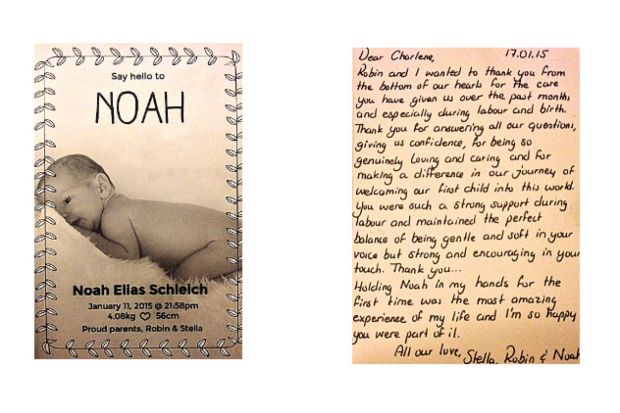 Say hello to
NOAH
Noah Elias Schleich
January 11, 2015 @ 21:58pm
4.08kg 56cm
Proud parents, Robin & Stella
Dear Charlene, 17.01.15
Robin and I wanted to thank you from
the bottom of our hearts for the care
you have given us over the past months
and especially during labour and birth.
Thank you for answering all our questions,
giving us confidence, for being so
genuinely loving and caring and for
making a difference in our journey of
welcoming our first child into this world.
You were such a strong support during
labour and maintained the perfect
balance of being gentle and soft in your
voice but strong and encouraging in your
touch. Thank you...
Holding Noah in my hands for the
first time was the most amazing
experience of my life and I'm so happy
you were part of it.
All our love, Stella, Robin & Noah